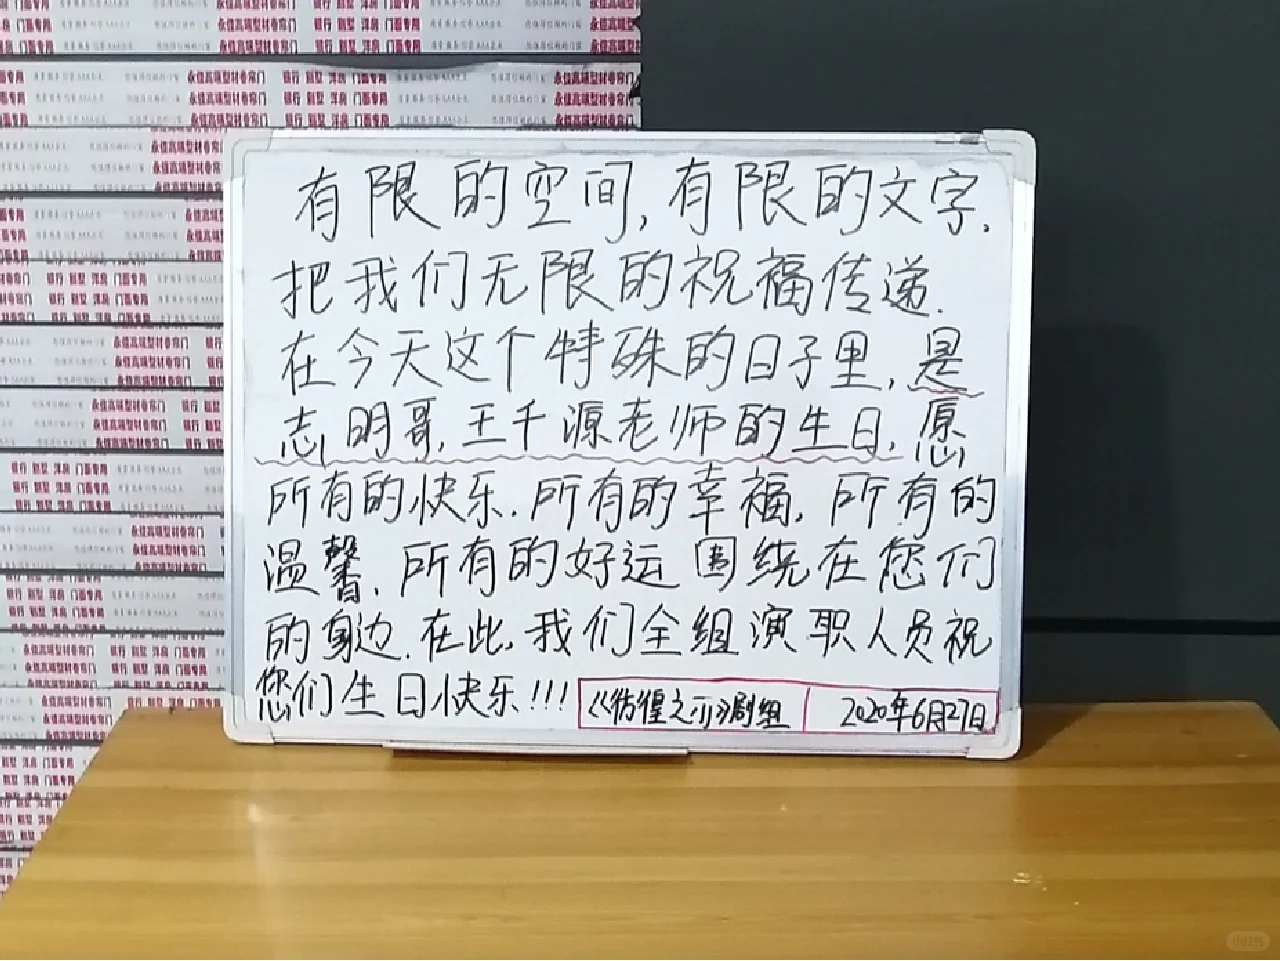 有限的空间,有限的文字.
把我们无限的祝福传递.
在今天这个特殊的日子里,是
志明哥,王千源老师的生日,愿
所有的快乐.所有的幸福,所有的
温馨,所有的好运围绕在您们
的身边.在此,我们全组演职人员祝
您们生日快乐!!!
《彷徨之刃》剧组 2020年6月27日
永佳高端型材卷帘门 银行 别墅 洋房 门面专用